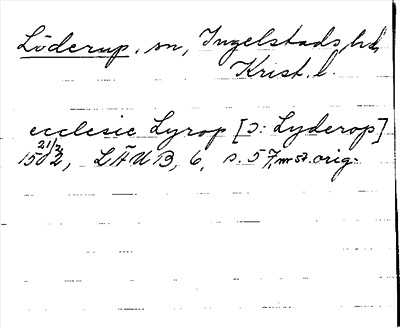 Löderup, sn, Ingelstads hd,
Krist. l.
ecclesie Lyrop [ɔ: Lyderop]
21/2
1502, LÄUB, 6, s. 57, m st. orig.